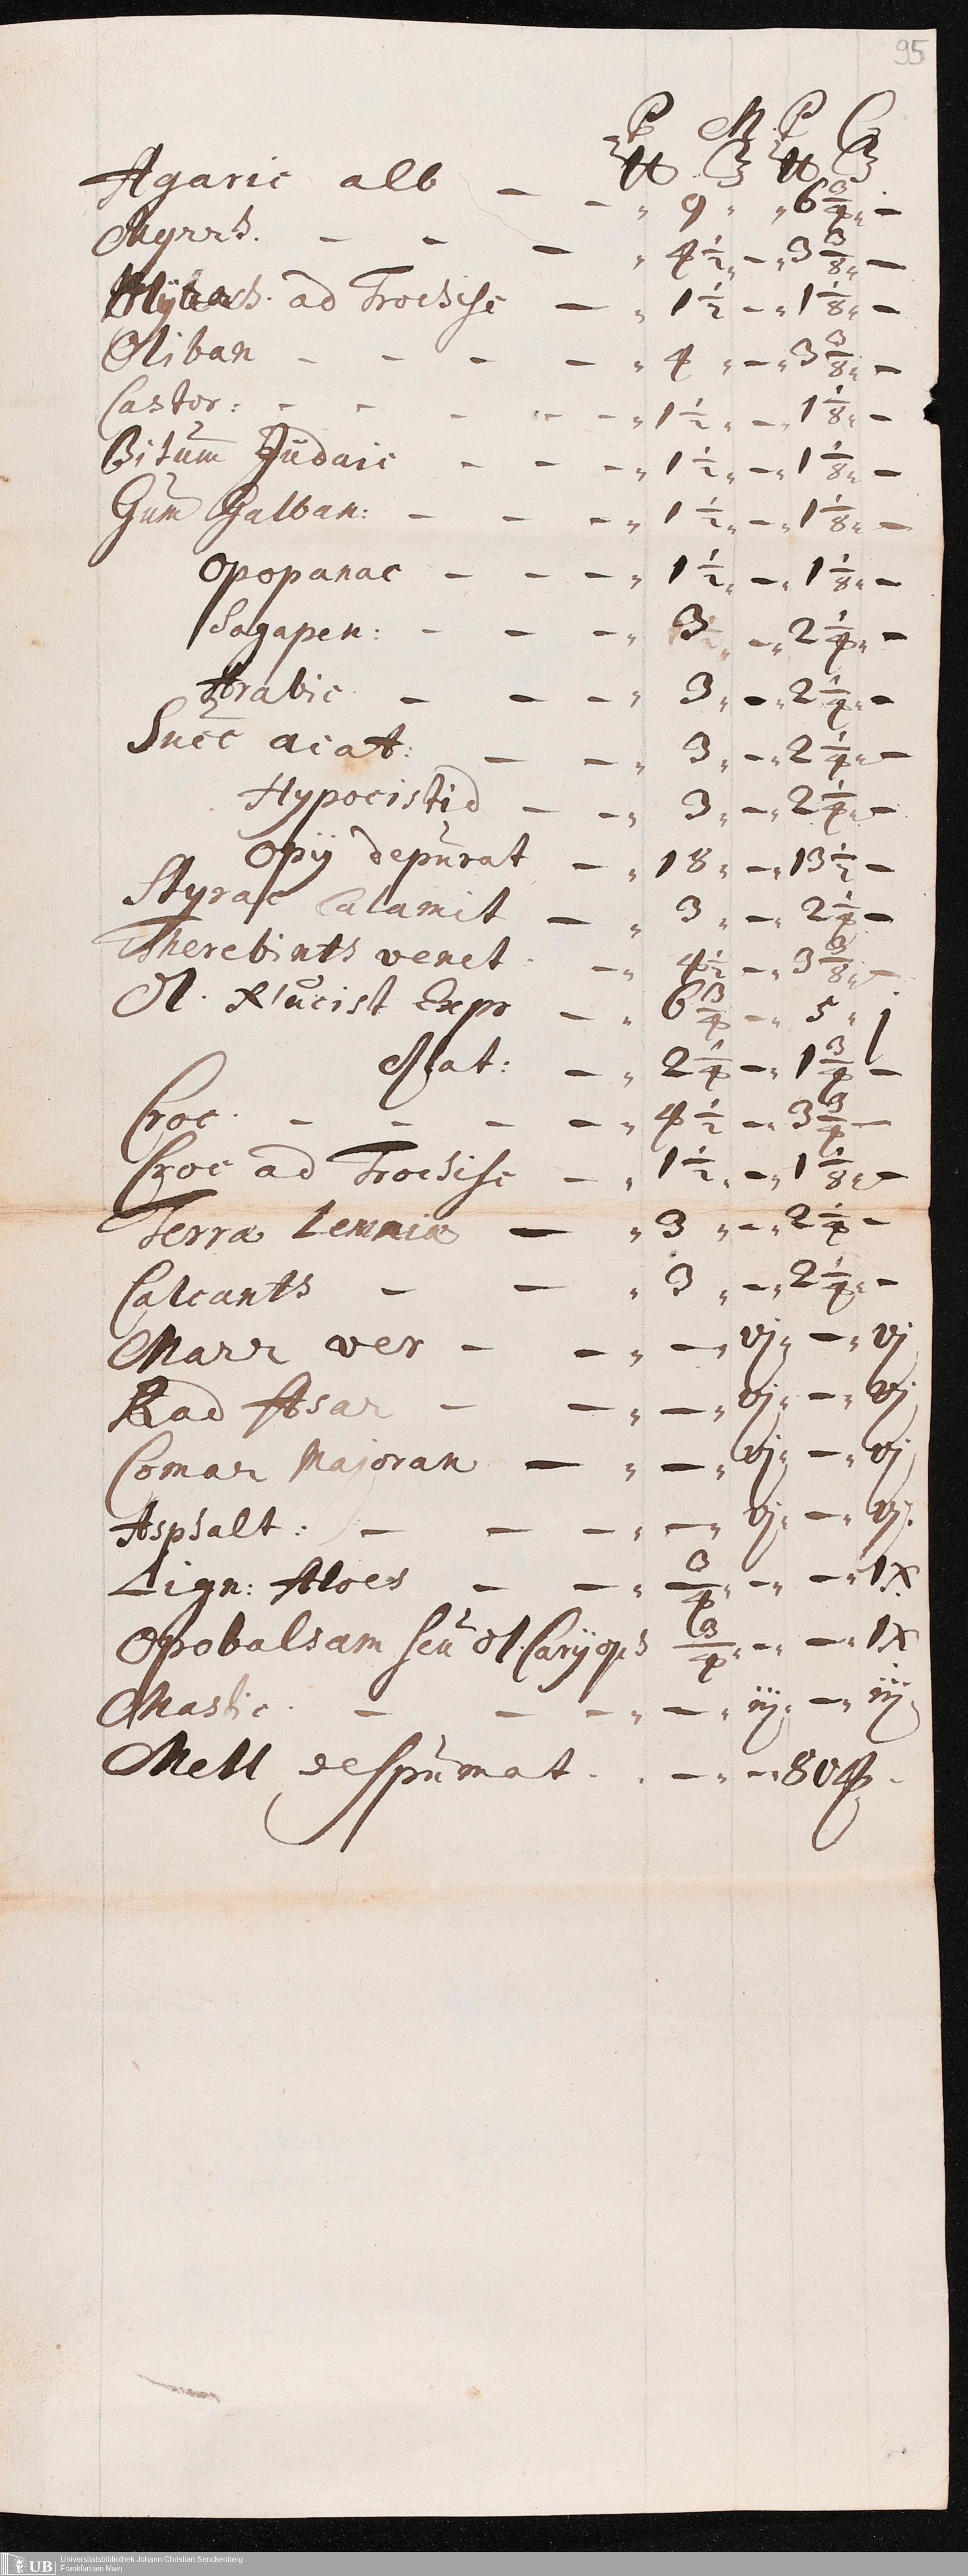 95
P M P C
℔ ℥ ℔ ℥
Agaric alb — — „ 9 „ „ 6 3/4 „ —
Myrrh. — — — „ 4 1/2 „ — „ 3 3/8 „ —
ad Trochisc — „ 1 1/2 — „ 1 1/8 „ —
Oliban — — — — „ 4 „ — „ 3 3/8 „ —
Castor: — — — — — „ 1 1/2 „ — „ 1 1/8 „ —
Bitum Judaic — — — „ 1 1/2 „ — „ 1 1/8 „ —
Gum Galban: — — — „ 1 1/2 „ — „ 1 1/8 „ —
Opopanac — — — „ 1 1/2 „ — „ 1 1/8 „ —
Sagapen: — — — „ 3 „ — „ 2 1/4 „ —
Arabic — — — „ 3 „ — „ 2 1/4 „ —
Succ acat: — — „ 3 „ — „ 2 1/4 „ —
Hypocistid — — „ 3 „ — „ 2 1/4 „ —
Opÿ depurat — „ 18 „ — „ 13 1/2 —
Styrac Calamit — „ 3 „ — „ 2 1/4 —
Therebinth venet. — „ 4 1/2 — „ 3 3/8 „ —
Ol. Nucist Expr — „ 6 3/4 — „ 5 „ j
Mat: — „ 2 1/4 — „ 1 3/4 —
Croc. — — — — „ 4 1/2 — „ 3 3/4 —
Croc ad Trochisc — „ 1 1/2 „ — „ 1 1/8 „ —
Terra Lemnia — „ 3 „ — „ 2 1/4 —
Calcanth — — „ 3 „ — „ 2 1/4 „ —
Marr ver — — „ — „ vj „ — „ vj
Rad Asar — — „ — „ vj „ — „ vj
Comar Majoran — „ — „ vj „ — „ vj
Asphalt: — — — „ — „ vj „ — „ vj.
Lign: Aloes — — „ 3/4 „ — „ — „ 1x
Opobalsam seu Ol. Carÿoph 3/4 „ — „ — „ 1x
Mastic. — — — „ — „ iij „ — „ iij
Mell despumat. . — „ — „ 804 —
UB
Universitätsbibliothek Johann Christian Senckenberg
Frankfurt am Main